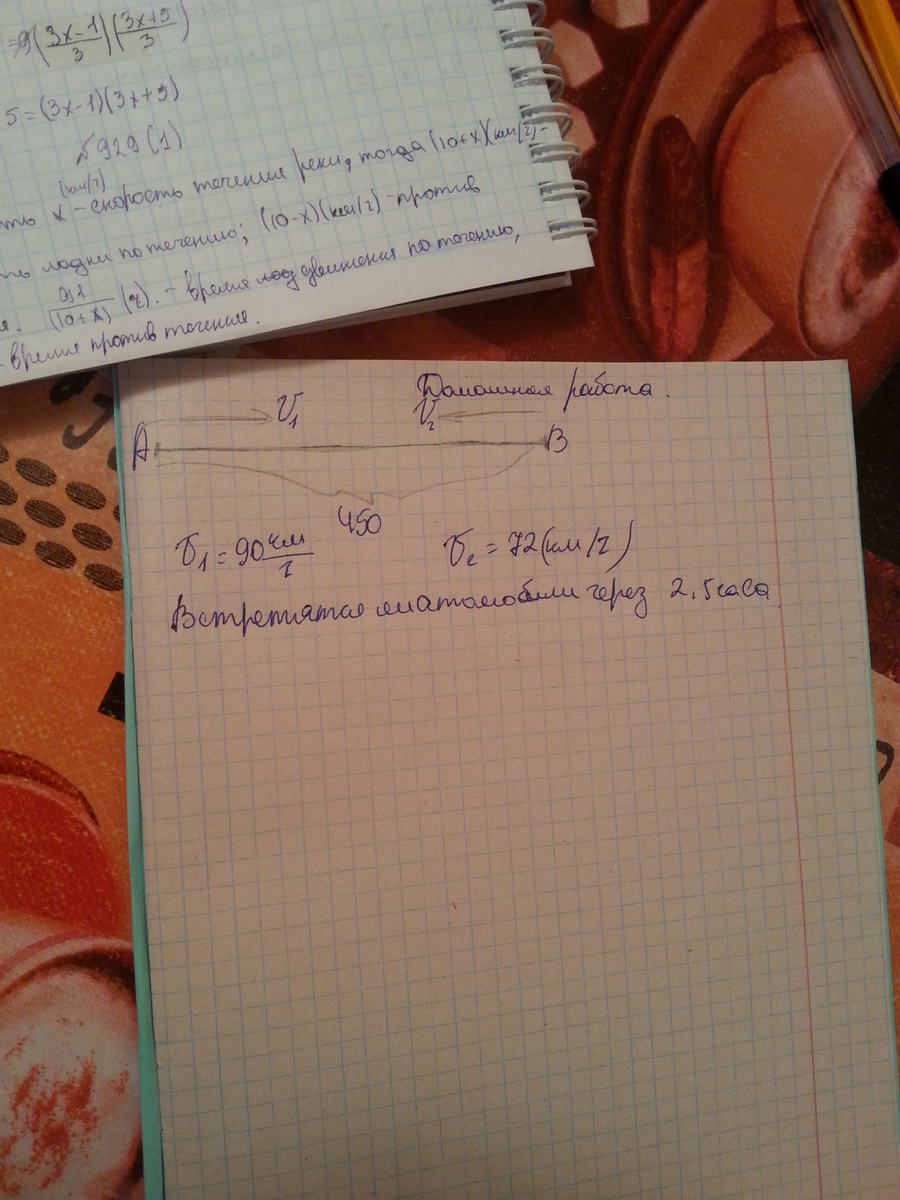 =9(3x-1/3)(3x+5/3)
5=(3x-1)(3x+5)
№929(1)
(км/г)
x - скорость течения реки, тогда (10+x)(км/г)-
лодки по течению; (10-x)(км/г)-против
(10+x) (г). - время движения по течению,
время против течения.
Домашная работа.
V₁ V₂
A B
450
V₁=90 км/г V₂=72(км/г)
Встретятся через 2,5 часа